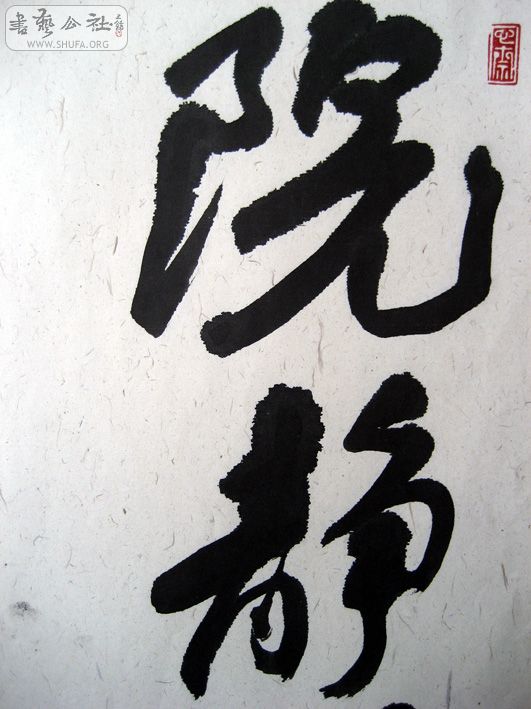 院静
書艺公社
WWW.SHUFA.ORG